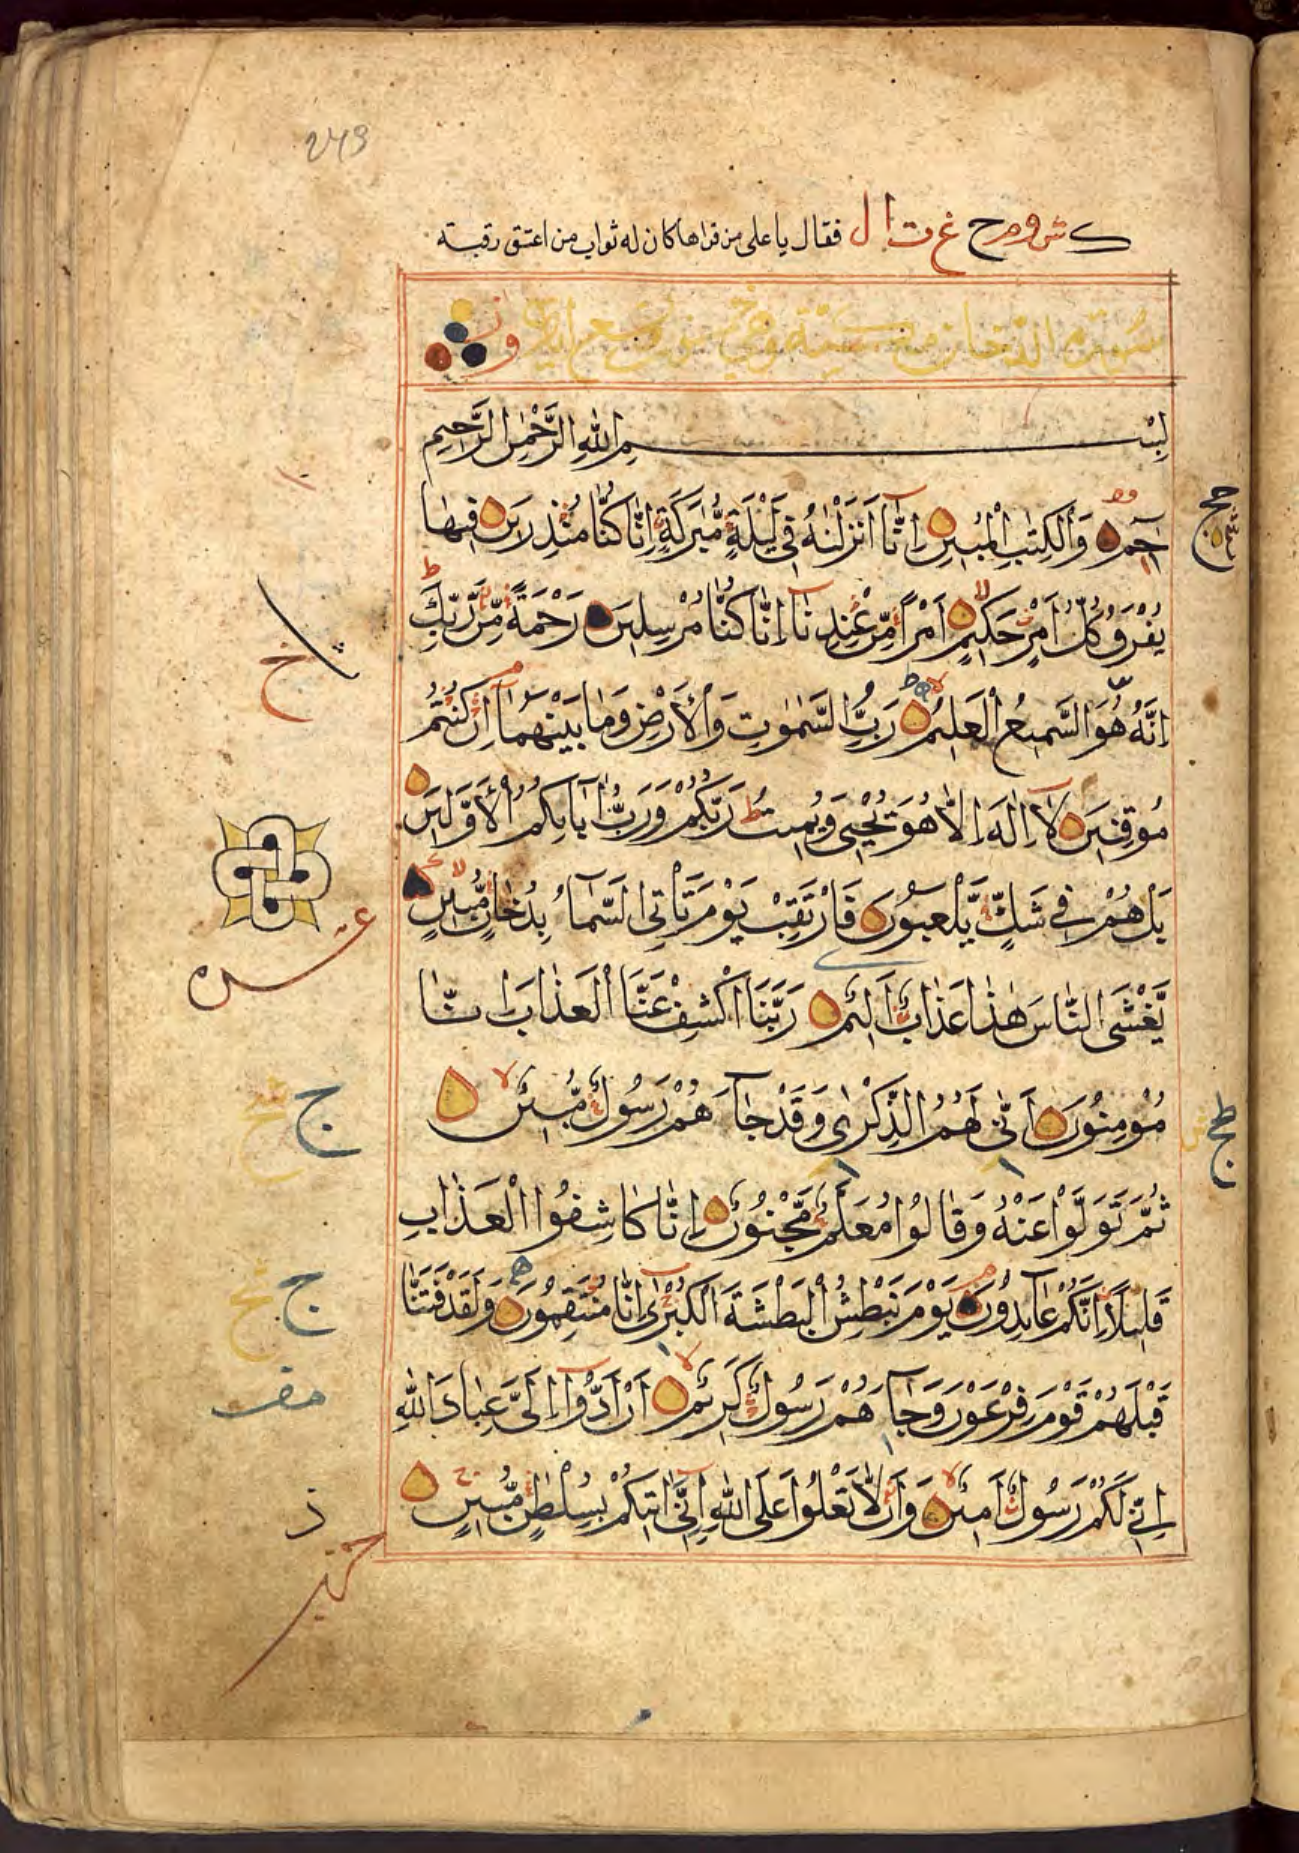 243
فقال يا على من قراها كان له ثواب من اعتق رقبته
سورة الدخان وهي تسع وخمسون اية
بِسْمِ اللهِ الرَّحْمٰنِ الرَّحِيمِ
حٰمٓ وَالْكِتٰبِ الْمُبِينِ اِنَّا اَنْزَلْنٰهُ فِي لَيْلَةٍ مُّبٰرَكَةٍ اِنَّا كُنَّا مُنْذِرِينَ فِيهَا
يُفْرَقُ كُلُّ اَمْرٍ حَكِيمٍ اَمْرًا مِّنْ عِنْدِنَا اِنَّا كُنَّا مُرْسِلِينَ رَحْمَةً مِّنْ رَّبِّكَ
اِنَّهُ هُوَ السَّمِيعُ الْعَلِيمُ رَبُّ السَّمٰوٰتِ وَالْاَرْضِ وَمَا بَيْنَهُمَا اِنْ كُنْتُمْ
مُوقِنِينَ لَا اِلٰهَ اِلَّا هُوَ يُحْيِي وَيُمِيتُ رَبُّكُمْ وَرَبُّ اٰبَائِكُمُ الْاَوَّلِينَ
بَلْ هُمْ فِي شَكٍّ يَّلْعَبُونَ فَارْتَقِبْ يَوْمَ تَأْتِي السَّمَآءُ بِدُخَانٍ مُّبِينٍ
يَّغْشَى النَّاسَ هٰذَا عَذَابٌ اَلِيمٌ رَبَّنَا اكْشِفْ عَنَّا الْعَذَابَ اِنَّا
مُؤْمِنُونَ اَنّٰى لَهُمُ الذِّكْرٰى وَقَدْ جَآءَهُمْ رَسُولٌ مُّبِينٌ
ثُمَّ تَوَلَّوْا عَنْهُ وَقَالُوا مُعَلَّمٌ مَّجْنُونٌ اِنَّا كَاشِفُوا الْعَذَابِ
قَلِيلًا اِنَّكُمْ عَآئِدُونَ يَوْمَ نَبْطِشُ الْبَطْشَةَ الْكُبْرٰى اِنَّا مُنْتَقِمُونَ وَلَقَدْ فَتَنَّا
قَبْلَهُمْ قَوْمَ فِرْعَوْنَ وَجَآءَهُمْ رَسُولٌ كَرِيمٌ اَنْ اَدُّوا اِلَيَّ عِبَادَ اللهِ
اِنِّي لَكُمْ رَسُولٌ اَمِينٌ وَاَنْ لَّا تَعْلُوا عَلَى اللهِ اِنِّي اٰتِيكُمْ بِسُلْطٰنٍ مُّبِينٍ